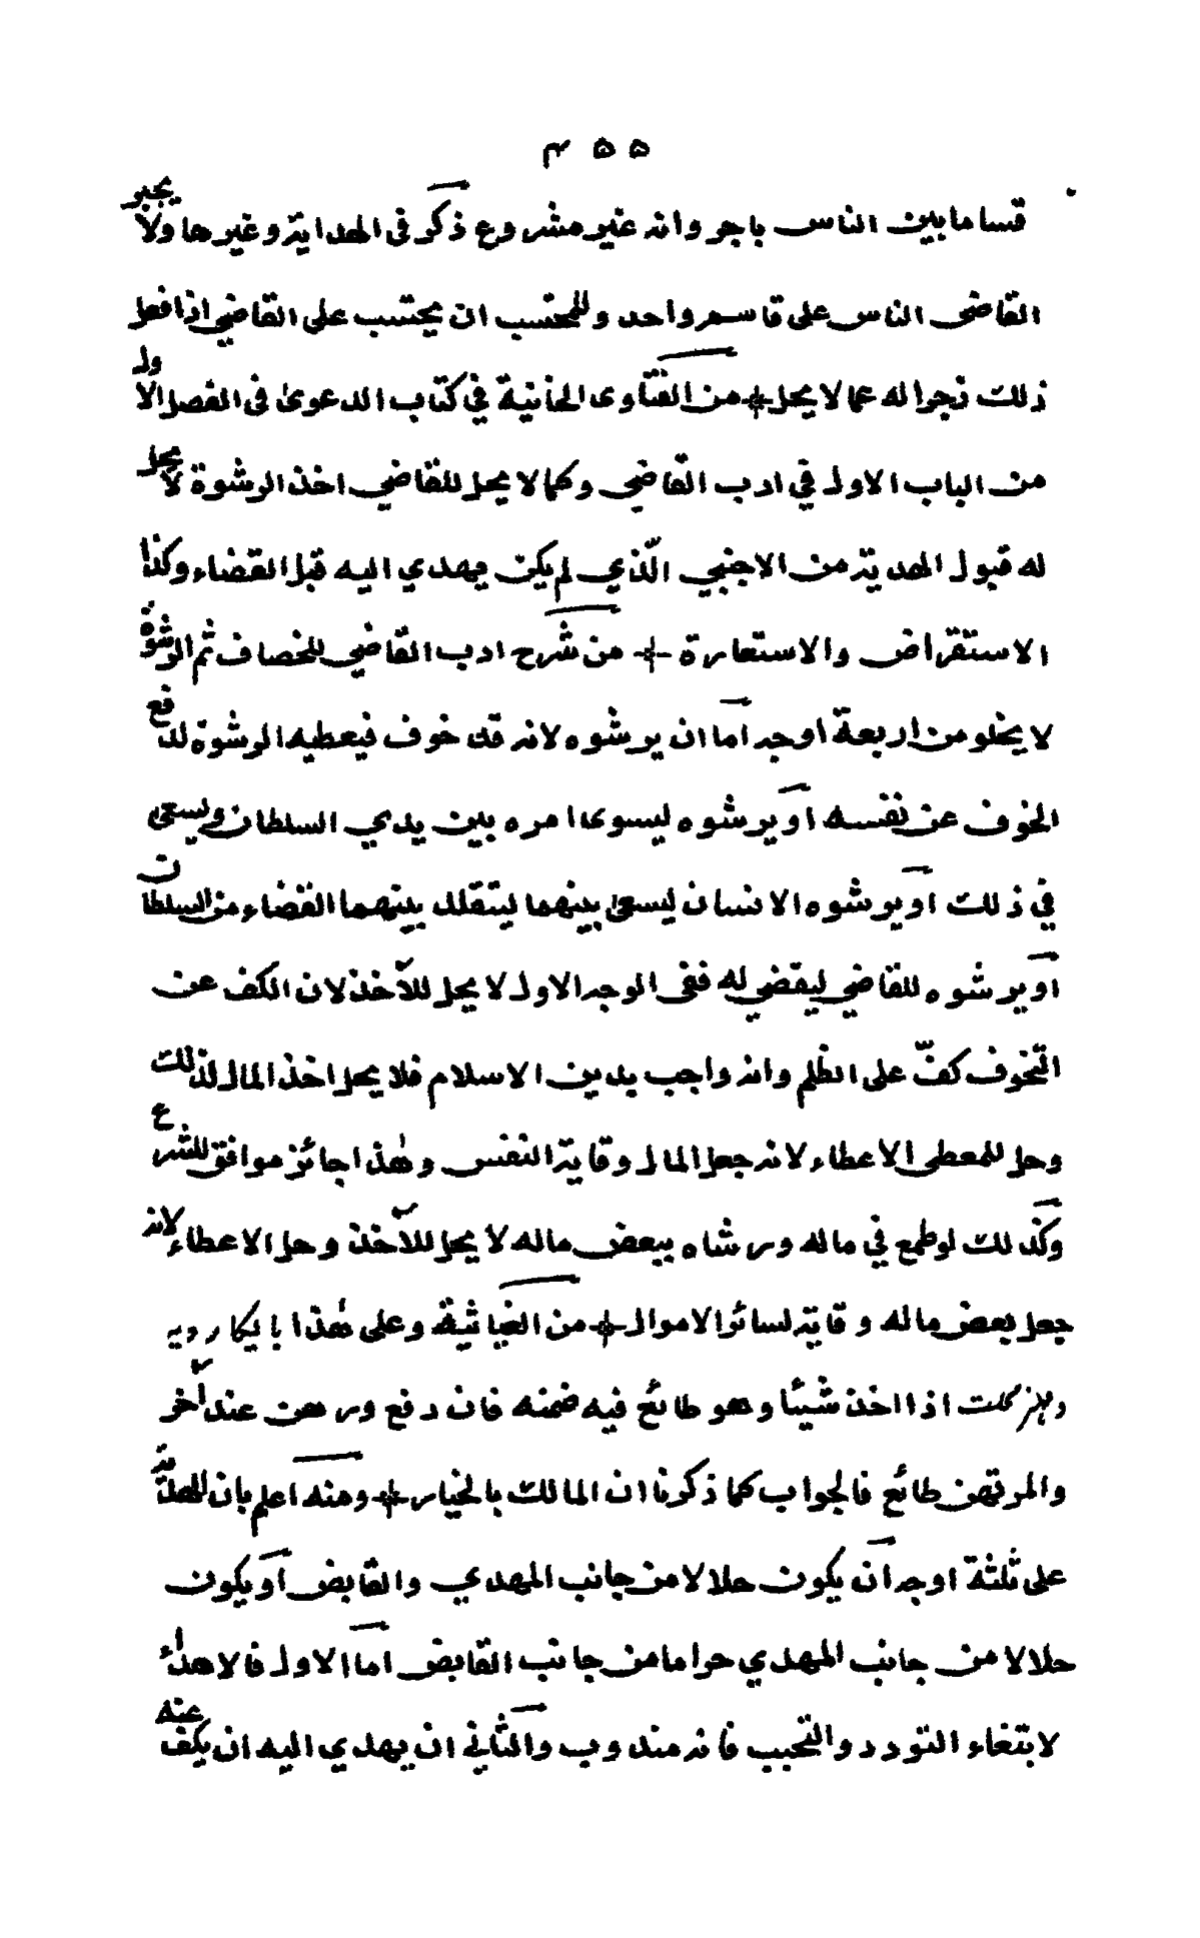 ٤٥٥
قساما بين الناس باجر وانه غير مشروع ذكر في الهداية وغيرها ولا يجبر
القاضى الناس على قاسم واحد وللمحتسب ان يحتسب على القاضي اذا فعل
ذلك زجرا له عما لا يحل من الفتاوى الخانية في كتاب الدعوى فى الفصل الاول
من الباب الاول في ادب القاضي وكما لا يحل للقاضي اخذ الرشوة لا يحل
له قبول الهدية من الاجنبي الّذي لم يكن يهدي اليه قبل القضاء وكذا
الاستقراض والاستعارة من شرح ادب القاضي للخصاف ثم الرشوة
لا يخلو من اربعة اوجه اما ان يرشوه لانه قد خوف فيعطيه الرشوة لدفع
الخوف عن نفسه او يرشوه ليسوى امره بين يدي السلطان ويسعى
في ذلك او يرشوه الانسان ليسعى بينهما ليتقلد بينهما القضاء من السلطان
او يرشوه للقاضي ليقضي له ففى الوجه الاول لا يحل للآخذ لان الكف عن
التخوف كفّ على الظلم وانه واجب بدين الاسلام فلا يحل اخذ المال لذلك
وحل للمعطى الاعطاء لانه جعل المال وقاية النفس وهٰذا جائز موافق للشرع
وكذلك لو طمع في ماله ورشاه ببعض ماله لا يحل للآخذ وحل الاعطاء لانه
جعل بعض ماله وقاية لسائر الاموال من الغياثية وعلى هٰذا بايكار ديه
اذا اخذ شيئا وهو طائع فيه ضمنه فان دفع ورهن عند آخر
والمرتهن طائع فالجواب كما ذكرنا ان المالك بالخيار ومنه اعلم بان الهدية
على ثلثة اوجه ان يكون حلالا من جانب المهدي والقابض او يكون
حلالا من جانب المهدي حراما من جانب القابض اما الاول فالاهداء
لابتغاء التودد والتحبب فانه مندوب والثاني ان يهدي اليه ان يكف عنه